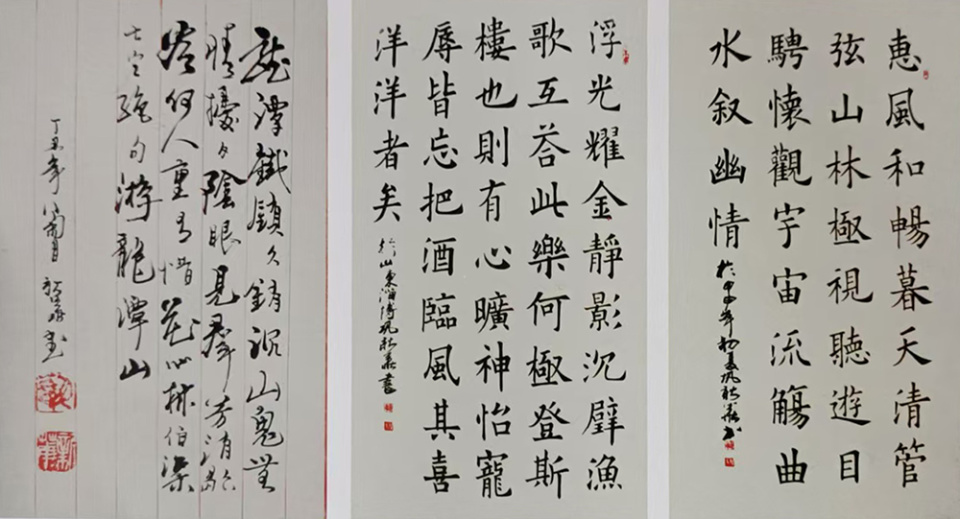 惠風和暢暮天清管
弦山林極視聽遊目
騁懷觀宇宙流觴曲
水叙幽情
於甲申年初夏巩
浮光耀金靜影沉璧漁
歌互荅此樂何極登斯
樓也則有心曠神怡寵
辱皆忘把酒臨風其喜
洋洋者矣
於山東淄博巩 書
龍潭鐵鎖久銷沉山鬼無
情擾夕陰眼見羣芳消歇
何人重 惜花心林伯渠
七言絕句游龍潭山
丁丑年菊月 書